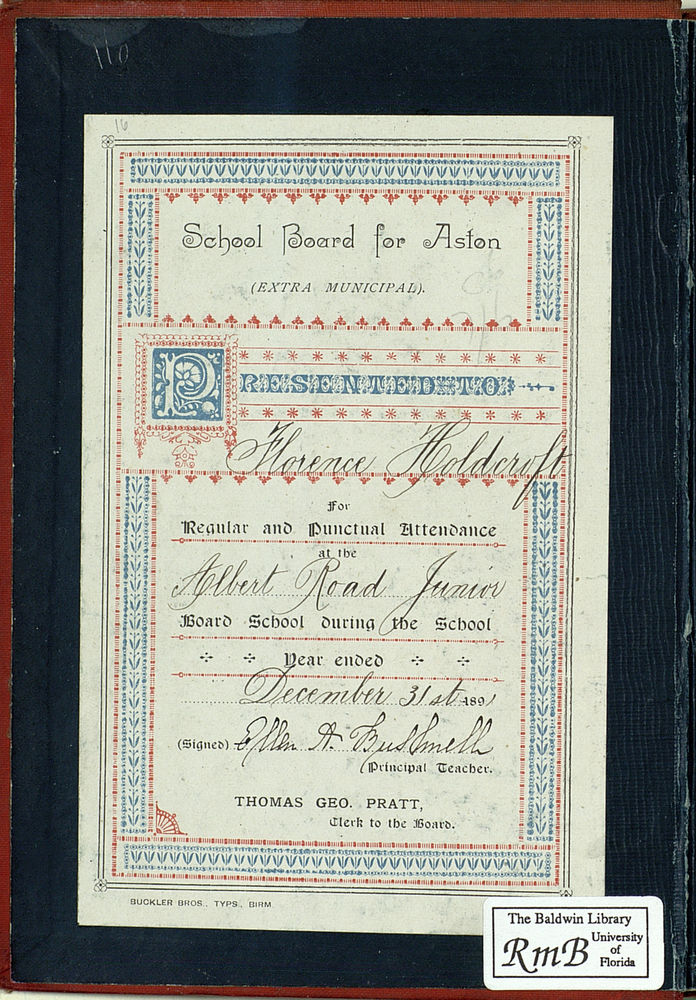 110
16
School Board for Aston
(EXTRA MUNICIPAL).
PRESENTED TO
Florence Holdcroft
For
Regular and Punctual Attendance
at the
Albert Road Junior
Board School during the School
Year ended
December 31st 1891
(Signed) Ellen A. Bushnell
Principal Teacher.
THOMAS GEO. PRATT,
Clerk to the Board.
BUCKLER BROS., TYPS., BIRM.
The Baldwin Library
RmB University
of
Florida